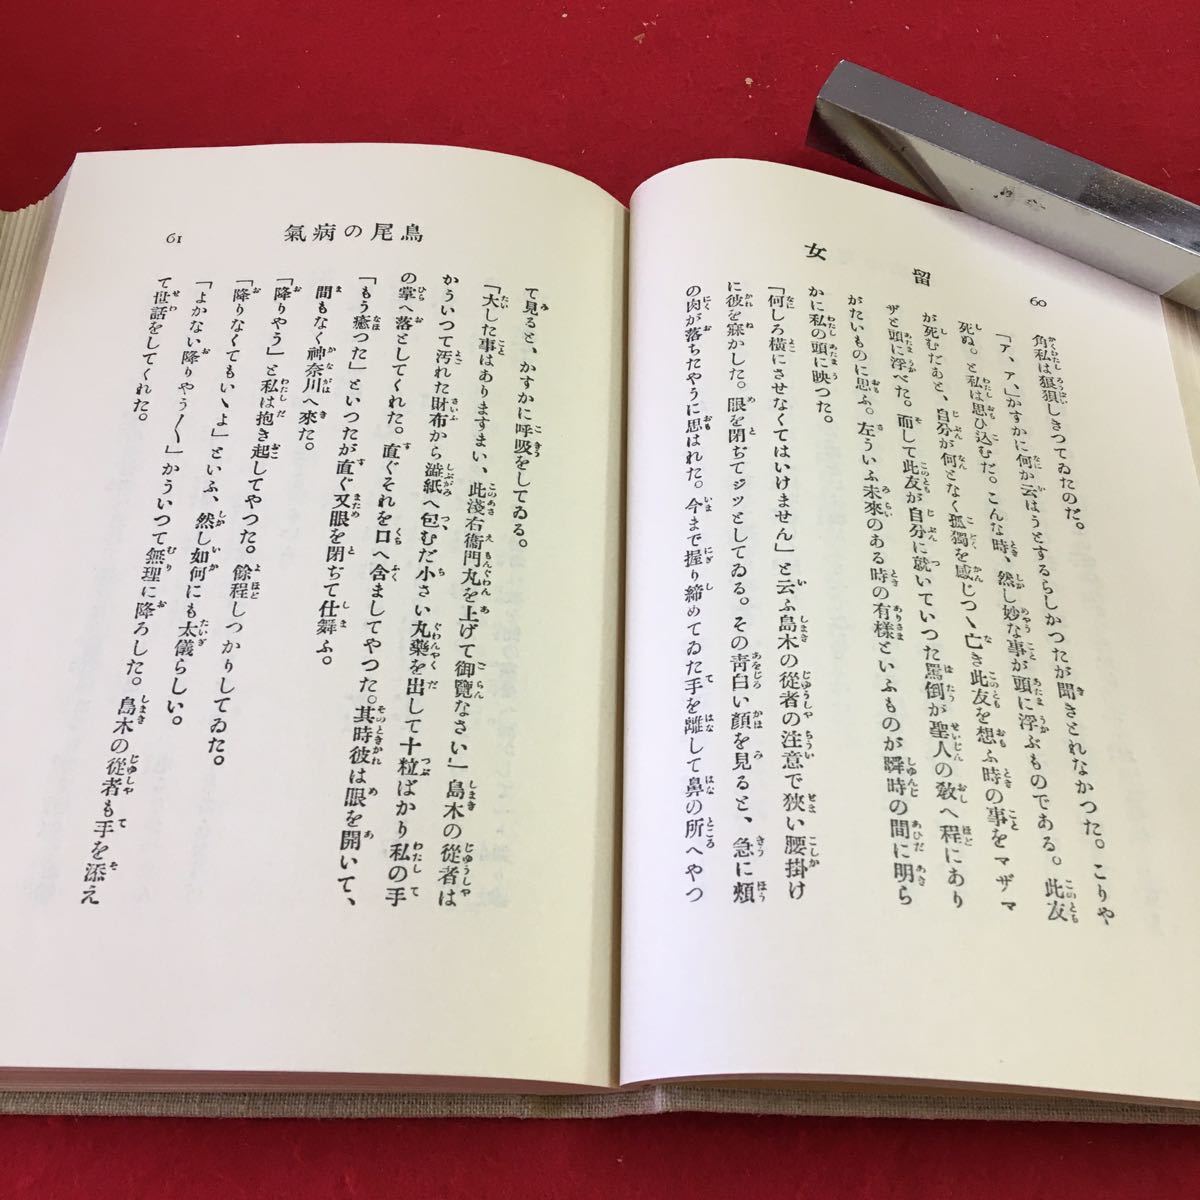 留女
60
角私は狼狽しきつてゐたのだ。
「ア、ア、」かすかに何か云はうとするらしかつたが聞きとれなかつた。こりや
死ぬ。と私は思ひ込むだ。こんな時、然し妙な事が頭に浮ぶものである。此友
が死むだあと、自分が何となく孤獨を感じつゝ亡き此友を想ふ時の事をマザマ
ザと頭に浮べた。而して此友が自分に就いていつた罵倒が聖人の敎へ程にあり
がたいものに思ふ。左ういふ未來のある時の有樣といふものが瞬時の間に明ら
かに私の頭に映つた。
「何しろ横にさせなくてはいけません」と云ふ島木の從者の注意で狹い腰掛け
に彼を寐かした。眼を閉ぢてジッとしてゐる。その靑白い顏を見ると、急に頰
の肉が落ちたやうに思はれた。今まで握り締めてゐた手を離して鼻の所へやつ
鳥尾の病氣
61
て見ると、かすかに呼吸をしてゐる。
「大した事はありますまい、此淺右衞門丸を上げて御覽なさい」島木の從者は
かういつて汚れた財布から澁紙へ包むだ小さい丸藥を出して十粒ばかり私の手
の掌へ落としてくれた。直ぐそれを口へ含ましてやつた。其時彼は眼を開いて、
「もう癒つた」といつたが直ぐ又眼を閉ぢて仕舞ふ。
間もなく神奈川へ來た。
「降りやう」と私は抱き起してやつた。餘程しつかりしてゐた。
「降りなくてもいゝよ」といふ、然し如何にも太儀らしい。
「よかない降りやう〱」かういつて無理に降ろした。島木の從者も手を添え
て世話をしてくれた。